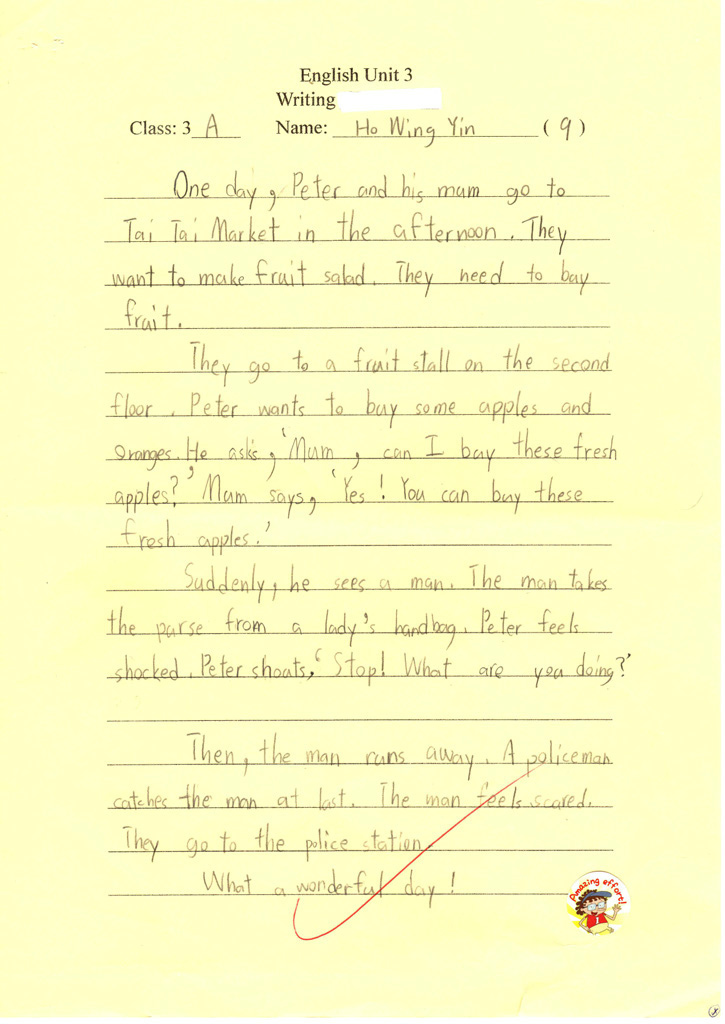 English Unit 3
Writing
Class: 3 A Name: Ho Wing Yin ( 9 )
One day, Peter and his mum go to
Tai Tai Market in the afternoon. They
want to make fruit salad. They need to buy
fruit.
They go to a fruit stall on the second
floor. Peter wants to buy some apples and
oranges. He asks, 'Mum, can I buy these fresh
apples?' Mum says, 'Yes! You can buy these
fresh apples.'
Suddenly, he sees a man. The man takes
the purse from a lady's handbag. Peter feels
shocked. Peter shouts, 'Stop! What are you doing?'
Then, the man runs away. A policeman
catches the man at last. The man feels scared.
They go to the police station.
What a wonderful day!
Amazing effort!